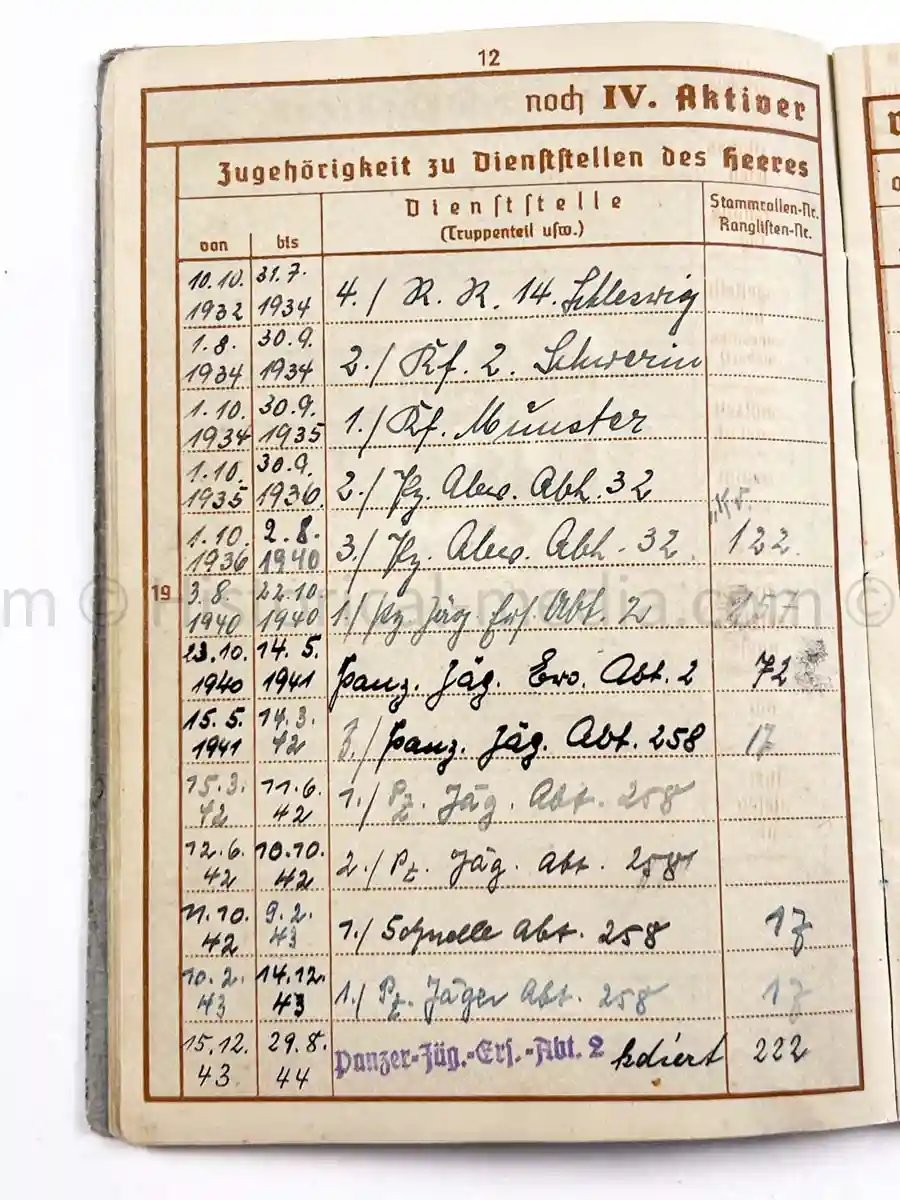 12
noch IV. Aktiver
Zugehörigkeit zu Dienststellen des Heeres
von bis Dienststelle (Truppenteil usw.) Stammrollen-Nr. Ranglisten-Nr.
10.10. 1932 31.7. 1934 4./ R. R. 14. Schleswig
1.8. 1934 30.9. 1934 2./ Kf. 2. Schwerin
1.10. 1934 30.9. 1935 1./ Kf. Münster
1.10. 1935 30.9. 1936 2./ Pz. Abw. Abt. 32
1.10. 1936 2.8. 1940 3./ Pz. Abw. Abt. 32 122.
19
3.8. 1940 22.10. 1940 1./ Pz Jäg Ers. Abt. 2
23.10. 1940 14.5. 1941 Panz. Jäg. Abt. 2 72
15.5. 1941 14.3. 42 Panz. Jäg. Abt. 258 17
15.3. 42 11.6. 42 1./ Pz. Jäg. Abt. 258
12.6. 42 10.10. 42 2./ Pz. Jäg. Abt. 258
11.10. 42 9.2. 43 1./ Schnelle Abt. 258 17
10.2. 43 14.12. 43 1./ Pz. Jäger Abt. 258 17
15.12. 43 29.8. 44 Panzer-Jäg.-Ers.-Abt. 2 222
m © Historical-media.com ©